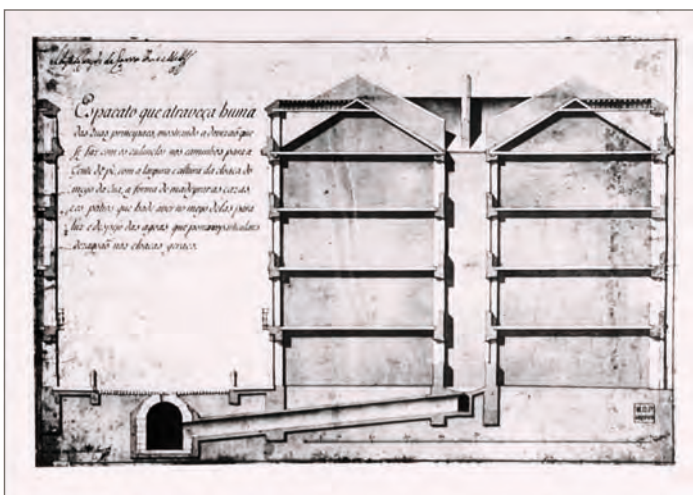 Espacato que atraveça huma
das duas principaes, mostrando a devizaõ que
se faz com os culunelos nos caminhos para a
Gente de pé, com a largura e altura da cloaca do
meyo da rua, a forma de madeyrar as cazas,
e os patios que hade aver no meyo delas para
luz e despejo das agoas que por
dezagoaõ nas cloacas geraes.